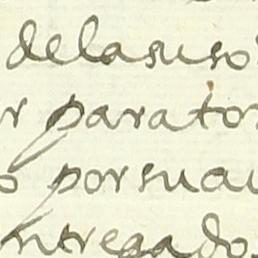 delasuso
r parator
o porsuau
ntregado